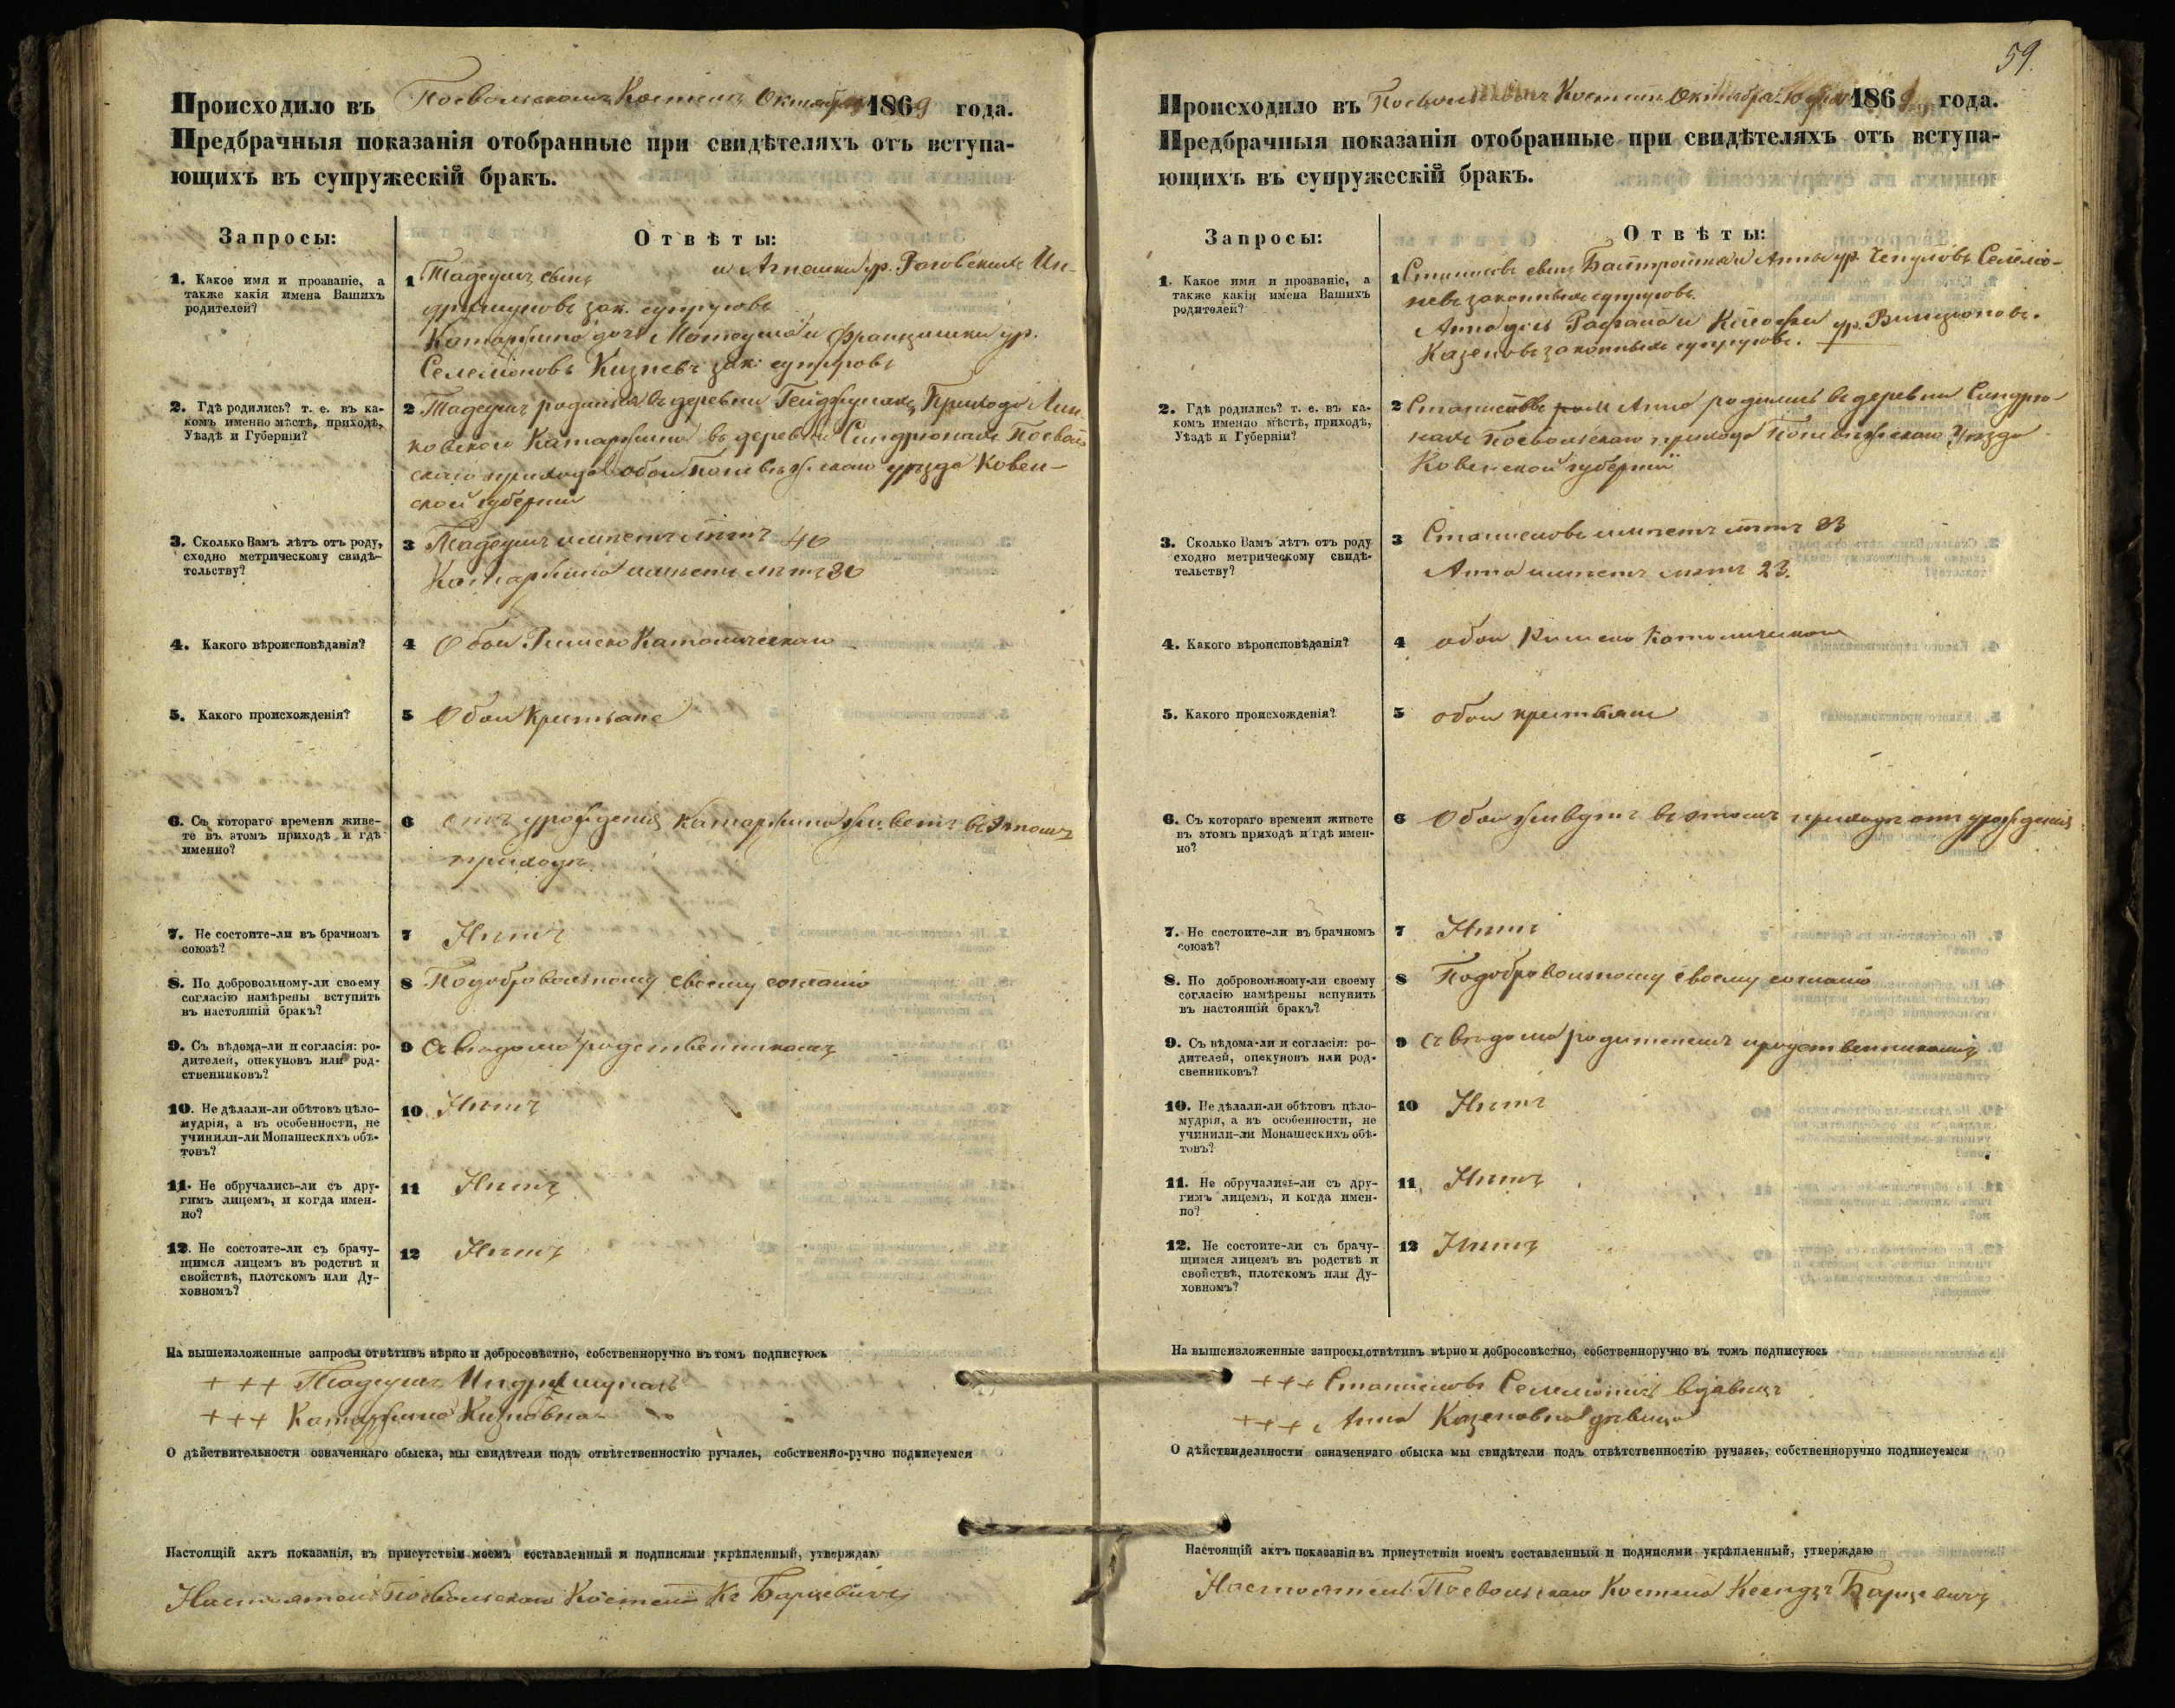 Происходило въ Посвольскомъ Костелѣ Октября 1869 года.
Предбрачныя показанія отобранные при свидѣтеляхъ отъ вступа-
ющихъ въ супружескій бракъ.
Запросы:
Отвѣты:
1. Какое имя и прозваніе, а
также какія имена Вашихъ
родителей?
1 Тадеушъ сынъ и Агнешки ур. Роговскихъ Ин-
дришуновъ зак. супруговъ
Катаржина дочь Матеуша и Францишки ур.
Селемоновъ Кизневъ зак. супруговъ
2. Гдѣ родились? т. е. въ ка-
комъ именно мѣстѣ, приходѣ,
Уѣздѣ и Губерніи?
2 Тадеушъ родился въ деревни Прихода Лин-
ковского Катаржина въ деревни Синдрюнахъ Посволь
скаго прихода обои Поневѣжскаго уѣзда Ковен-
ской губерніи
3. Сколько Вамъ лѣтъ отъ роду,
сходно метрическому свидѣ-
тельству?
3 Тадеушъ имѣетъ лѣтъ 40
Катаржина имѣетъ лѣтъ 30
4. Какого вѣроисповѣданія?
4 Обои Римско Католическаго
5. Какого происхожденія?
5 Обои Крестьяне
6. Съ котораго времени живе-
те въ этомъ приходѣ и гдѣ
именно?
6 отъ урожденія Катаржина живетъ въ этомъ
приходѣ
7. Не состоите-ли въ брачномъ
союзѣ?
7 Нѣтъ
8. По добровольному-ли своему
согласію намѣрены вступить
въ настоящій бракъ?
8 Подобровольному своему согласію
9. Съ вѣдома-ли и согласія: ро-
дителей, опекуновъ или род-
ственниковъ?
9 Съ вѣдома родственниковъ
10. Не дѣлали-ли обѣтовъ цѣло-
мудрія, а въ особенности, не
учинили-ли Монашескихъ обѣ-
товъ?
10 Нѣтъ
11. Не обручались-ли съ дру-
гимъ лицемъ, и когда имен-
но?
11 Нѣтъ
12. Не состоите-ли съ брачу-
щимся лицемъ въ родствѣ и
свойствѣ, плотскомъ или Ду-
ховномъ?
12 Нѣтъ
На вышеизложенные запросы отвѣтивъ вѣрно и добросовѣстно, собственноручно въ томъ подписуюсь
+++ Тадеушъ Индришунасъ
+++ Катаржина Кизновна
О дѣйствительности означеннаго обыска, мы свидѣтели подъ отвѣтственностію ручаясь, собственно-ручно подписуемся
Настоящій актъ показанія, въ присутствіи моемъ составленный и подписями укрѣпленный, утверждаю
Настоятель Посвольскаго Костела Кс Барцевичъ
59.
Происходило въ Посвольскомъ Костелѣ Октября 10 дня 1869 года.
Предбрачныя показанія отобранные при свидѣтеляхъ отъ вступа-
ющихъ въ супружескій бракъ.
Запросы:
Отвѣты:
1. Какое имя и прозваніе, а
также какія имена Вашихъ
родителей?
1 Станиславъ сынъ и Анны ур. Селемо-
невъ законныхъ супруговъ.
Анна дочь Рафала и ур.
Казеновъ законныхъ супруговъ.
2. Гдѣ родились? т. е. въ ка-
комъ именно мѣстѣ, приходѣ,
Уѣздѣ и Губерніи?
2 Станиславъ и Анна родились въ деревни Синдрю-
нахъ Посвольскаго прихода Поневѣжскаго Уѣзда
Ковенской губерніи
3. Сколько Вамъ лѣтъ отъ роду
сходно метрическому свидѣ-
тельству?
3 Станиславъ имѣетъ лѣтъ 33
Анна имѣетъ лѣтъ 23.
4. Какого вѣроисповѣданія?
4 обои Римско Католическаго
5. Какого происхожденія?
5 обои крестьяне
6. Съ котораго времени живете
въ этомъ приходѣ и гдѣ имен-
но?
6 Обои живутъ въ этомъ приходѣ отъ урожденія
7. Не состоите-ли въ брачномъ
союзѣ?
7 Нѣтъ
8. По добровольному-ли своему
согласію намѣрены вспунить
въ настоящій бракъ?
8 Подобровольному своему согласію
9. Съ вѣдома-ли и согласія: ро-
дителей, опекуновъ или род-
свенниковъ?
9 Съ вѣдома родителей и родственниковъ
10. Не дѣлали-ли обѣтовъ цѣло-
мудрія, а въ особенности, не
учинили-ли Монашескихъ обѣ-
товъ?
10 Нѣтъ
11. Не обручались-ли съ дру-
гимъ лицемъ, и когда имен-
но?
11 Нѣтъ
12. Не состоите-ли съ брачу-
щимся лицемъ въ родствѣ и
свойствѣ, плотскомъ или Ду-
ховномъ?
12 Нѣтъ
На вышеизложенные запросы отвѣтивъ вѣрно и добросовѣстно, собственноручно въ томъ подписуюсь
+++ Станиславъ Селемонисъ вдовецъ
+++ Анна Казеновна дѣвица
О дѣйствидельности означеннаго обыска мы свидѣтели подъ отвѣтственностію ручаясь, собственноручно подписуемся
Настоящій актъ показанія въ присутствіи моемъ составленный и подписями укрѣпленный, утверждаю
Настоятель Посвольскаго Костела Ксендзъ Барцевичъ